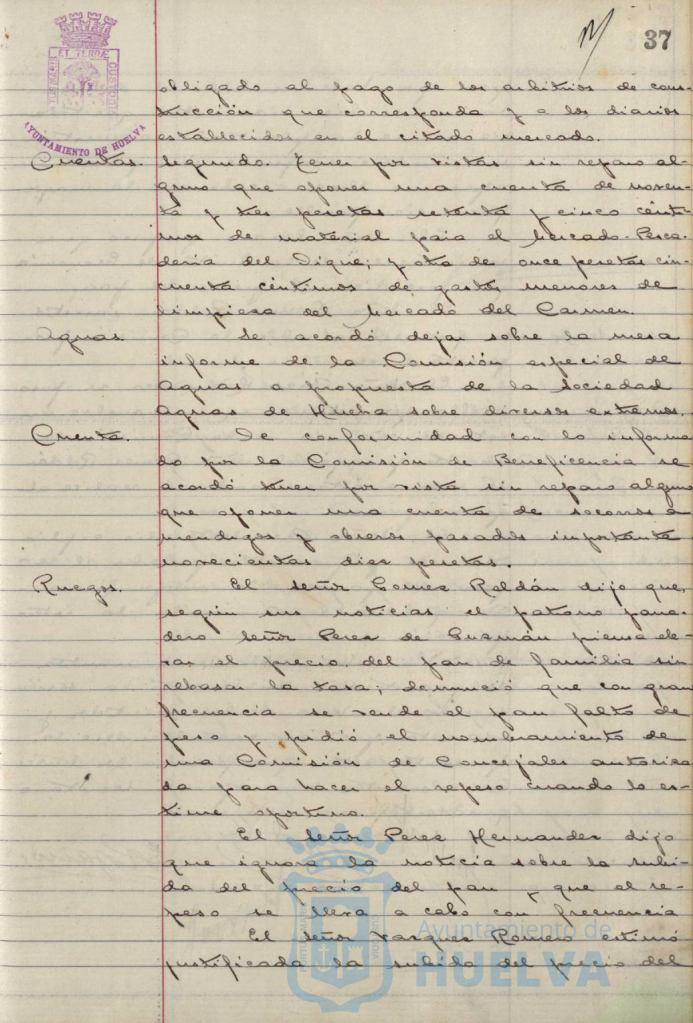 37
PORTUS MARIS ET TERRÆ CUSTODIA
AYUNTAMIENTO DE HUELVA
obligado al pago de los arbitrios de cons-
trucción que corresponda y a los diarios
establecidos en el citado mercado.
Cuentas. Segundo. Tener por vistas sin reparo al-
guno que oponer una cuenta de noven-
ta y tres pesetas setenta y cinco cénti-
mos de material para el Mercado-Pesca-
dería del Dique; y otra de once pesetas cin-
cuenta céntimos de gastos menores de
limpieza del Mercado del Carmen.
Aguas. Se acordó dejar sobre la mesa
informe de la Comisión especial de
Aguas a propuesta de la Sociedad
Aguas de Huelva sobre diversos extremos.
Cuenta. De conformidad con lo informa
do por la Comisión de Beneficencia se
acordó tener por vista sin reparo alguno
que oponer una cuenta de socorros a
mendigos y obreros parados importante
novecientas diez pesetas.
Ruegos. El señor Gomez Roldán dijo que,
según sus noticias el patrono pana-
dero Señor Perez de Guzmán piensa ele-
var el precio del pan de familia sin
rebasar la tasa; denunció que con gran
frecuencia se vende el pan falto de
peso y pidió el nombramiento de
una Comisión de Concejales autoriza
da para hacer el repeso cuando lo es-
time oportuno.
El señor Perez Hernandez dijo
que ignora la noticia sobre la subi-
da del precio del pan y que el re-
peso se lleva a cabo con frecuencia
El señor Vazquez Romero estimó
justificada la subida del precio del
Ayuntamiento de
HUELVA